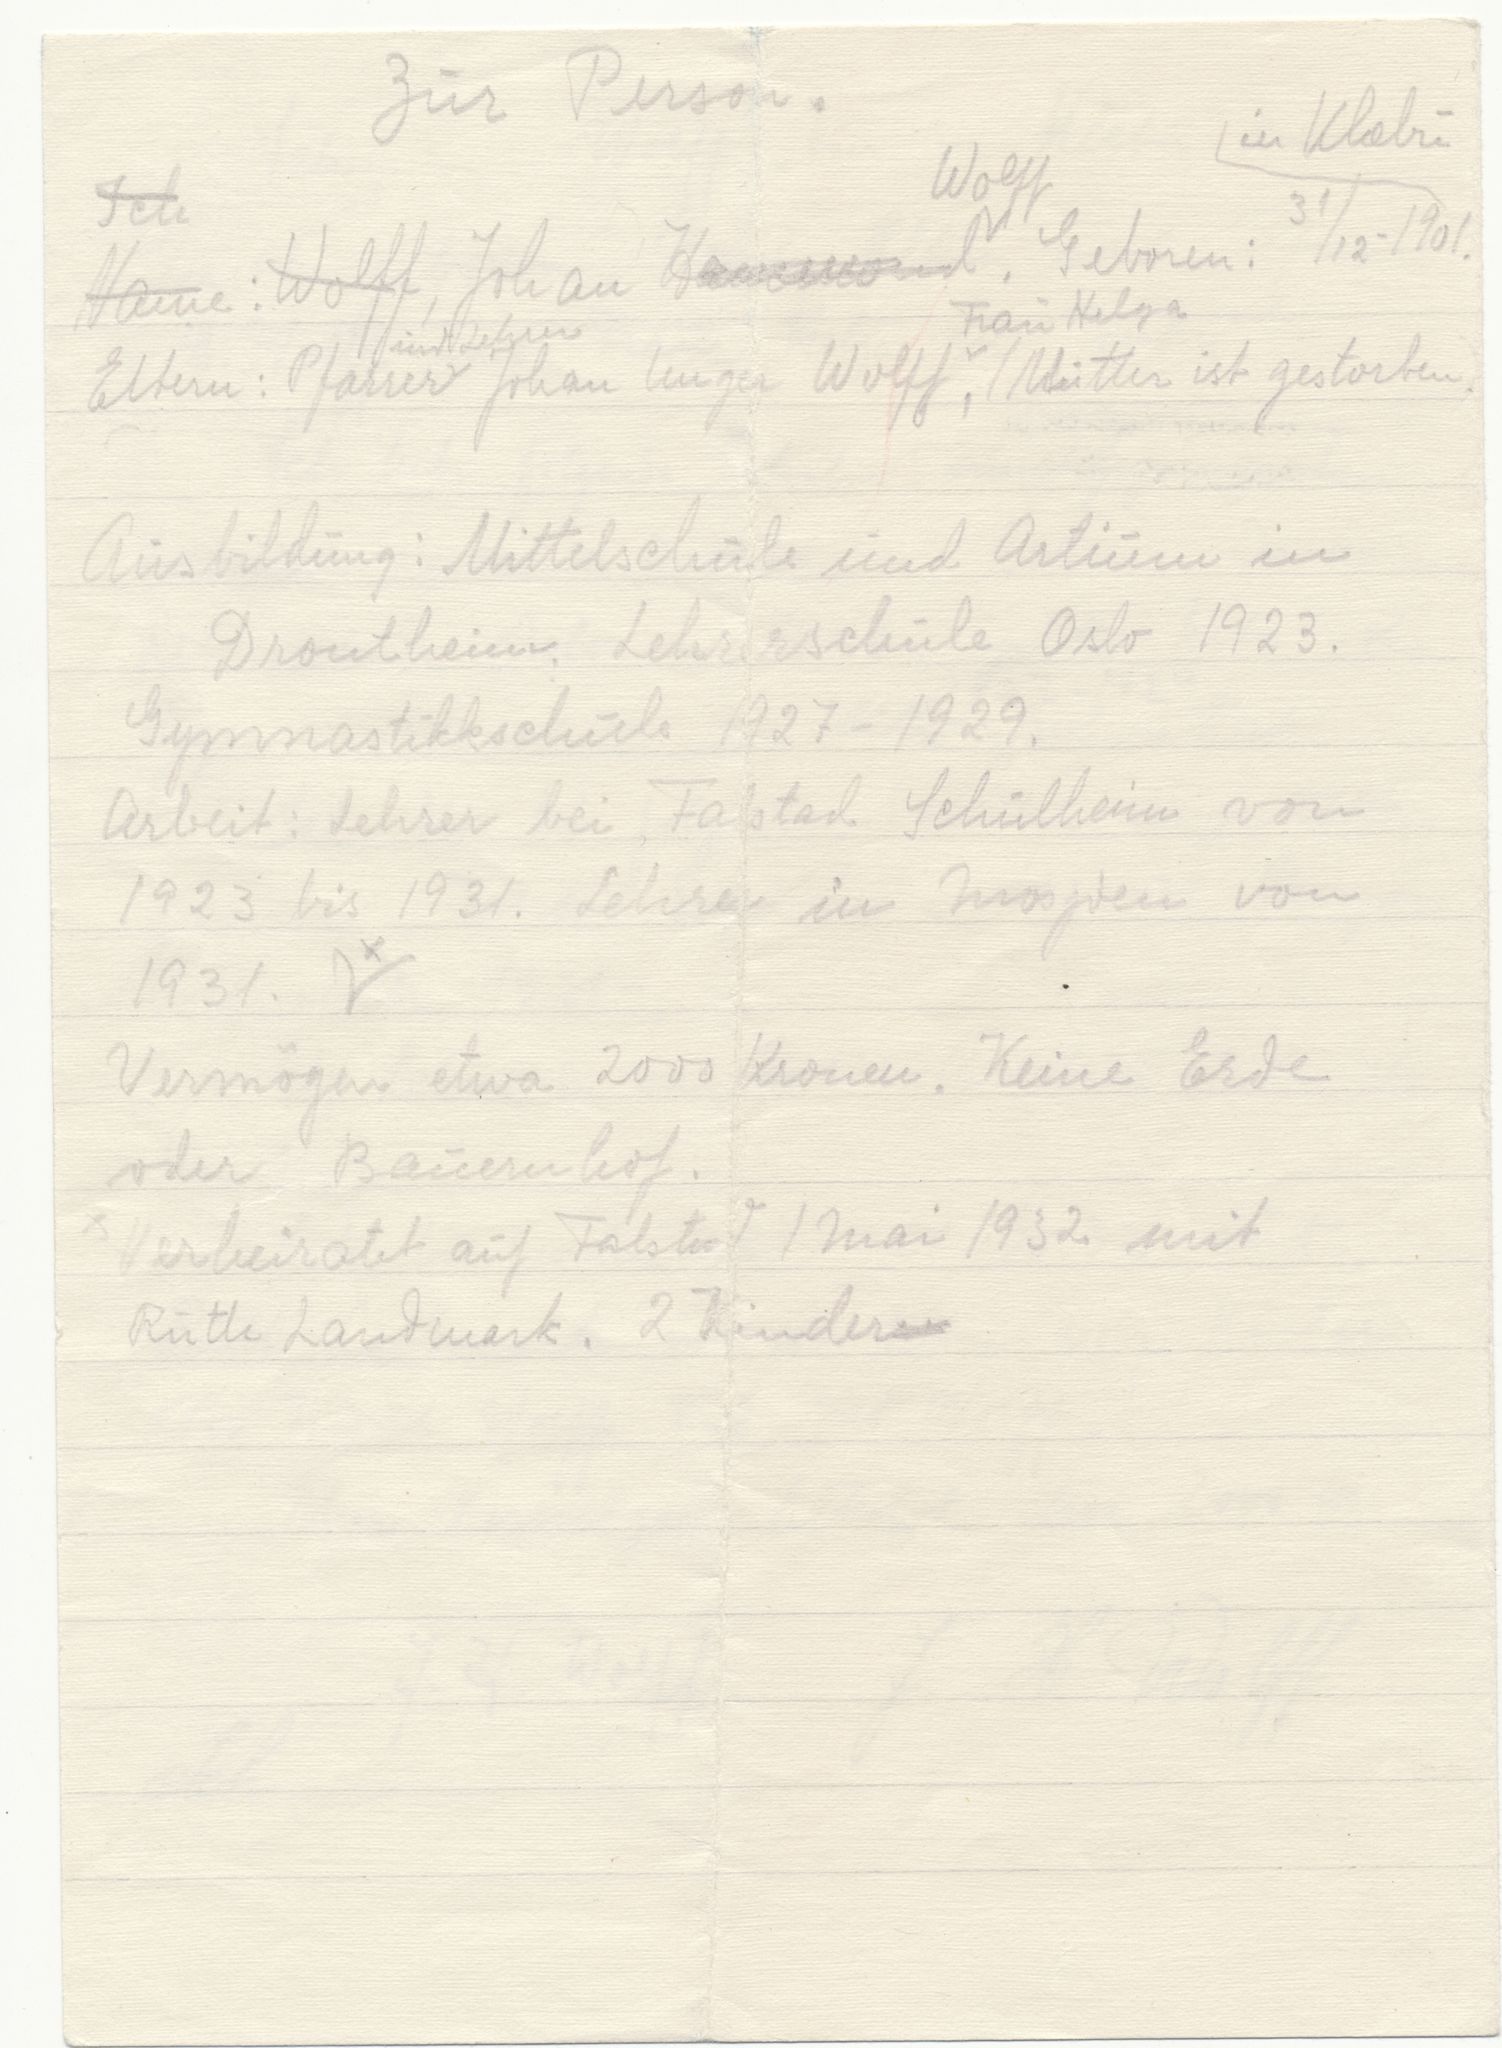 Zur Person.
in Klæbu
Ich
Wolff
Name: Wolff, Johan . Geboren: 31/12-1901.
und Lehrer
Frau Helga
Eltern: Pfarrer Johan Unger Wolff, Mutter ist gestorben.
Ausbildung: Mittelschule und Artium in
Drontheim. Lehrerschule Oslo 1923.
Gymnastikkschule 1927-1929.
Arbeit: Lehrer bei Falstad Schulheim von
1923 bis 1931. Lehrer in Mosjöen von
1931. x
Vermögen etwa 2000 Kronen. Keine Erde
oder Bauernhof.
x Verheiratet auf Falstad 1 Mai 1932 mit
Ruth Landmark. 2 Kinder